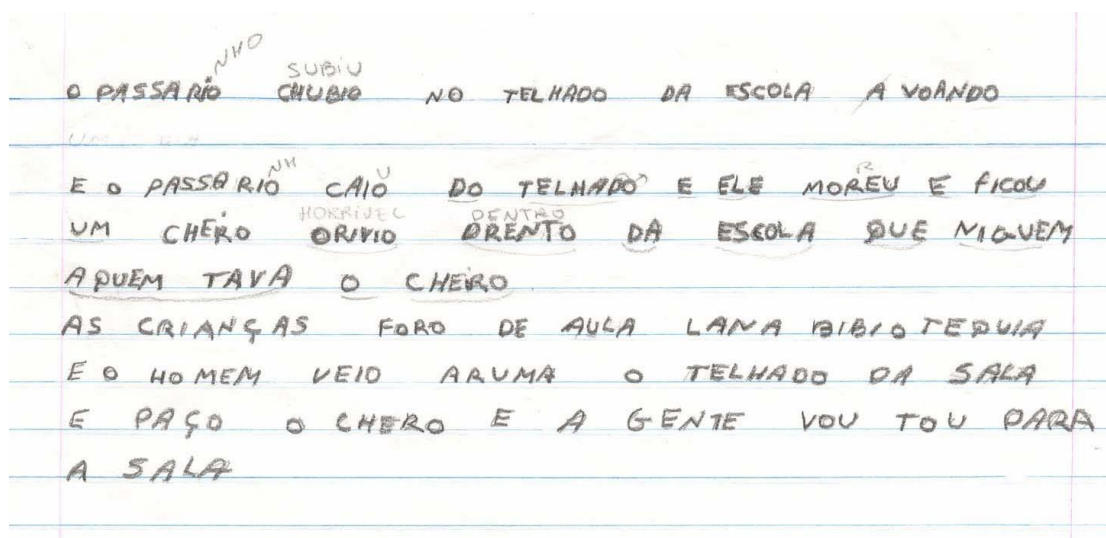 NHO
SUBIU
O PASSARIO CHUBIO NO TELHADO DA ESCOLA A VOANDO
NH U R
E O PASSARIO CAIO DO TELHADO E ELE MOREU E FICOU
HORRIVEL DENTRO
UM CHERO ORIVIO DRENTO DA ESCOLA QUE NIGUEM
AQUEM TAVA O CHEIRO
AS CRIANÇAS FORO DE AULA LANA BIBIOTEQUIA
E O HOMEM VEIO ARUMA O TELHADO DA SALA
E PAÇO O CHERO E A GENTE VOU TOU PARA
A SALA